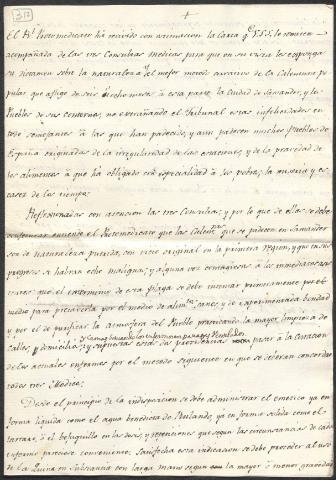 312
+
El Rl. Protomedicato ha recivido con estimacion la Carta qe. V.S.S. le remiten
acompañada de las tres Consultas Medicas para que en su vista les exponga
su dictamen sobre la naturaleza y el mejor metodo curativo de la Calentura po
pular que aflige de seis à ocho meses à esta parte la Ciudad de Santander, y los
Pueblos de sus contornos, no extrañando el Tribunal estas infelicidades en
todo semejantes à las que han padecido, y aun padecen muchos Pueblos de
España originadas de la irregularidad de las estaciones, y de la pravedad de
los alimentos à que ha obligado con especialidad à los pobres, la miseria y es
casez de los tiempos.
Reflexionadas con atencion las tres Consultas, y por lo que de ellas se debe
el Protomedicato que las Calentas. que se padecen en Santander
son de naturaleza putrida, con vicio original en la primera region, y que en su
progreso se habran echo malignas, y alguna vez contagiosas à los inmediatos asis
tentes: que el exterminio de esta plaga se debe intentar primeramente por el
medio para precaverla por el medio de alimtos. sanos, y de experimentada bondad
y por el de purificar la atmosfera del Pueblo practicando la mayor limpieza de
calles, y domicilios,
y supuestas estas dos providencias pasar a la curacion
de los actuales enfermos por el metodo siguiente en que se deberan concordar
todos tres Medicos.
Desde el principio de la indisposicion se debe administrar el emetico ya en
forma liquida como el agua benedicta de Rulando, ya en forma solida como el
tartaro, ò el bejuquillo en las dosis, y repeticiones que segun las circunstancias de cada
enfermo parezca conveniente. Satisfecha esta indicacion se debe proceder al uso
de la Quina en substancia con larga mano segun la mayor ò menor gravedad